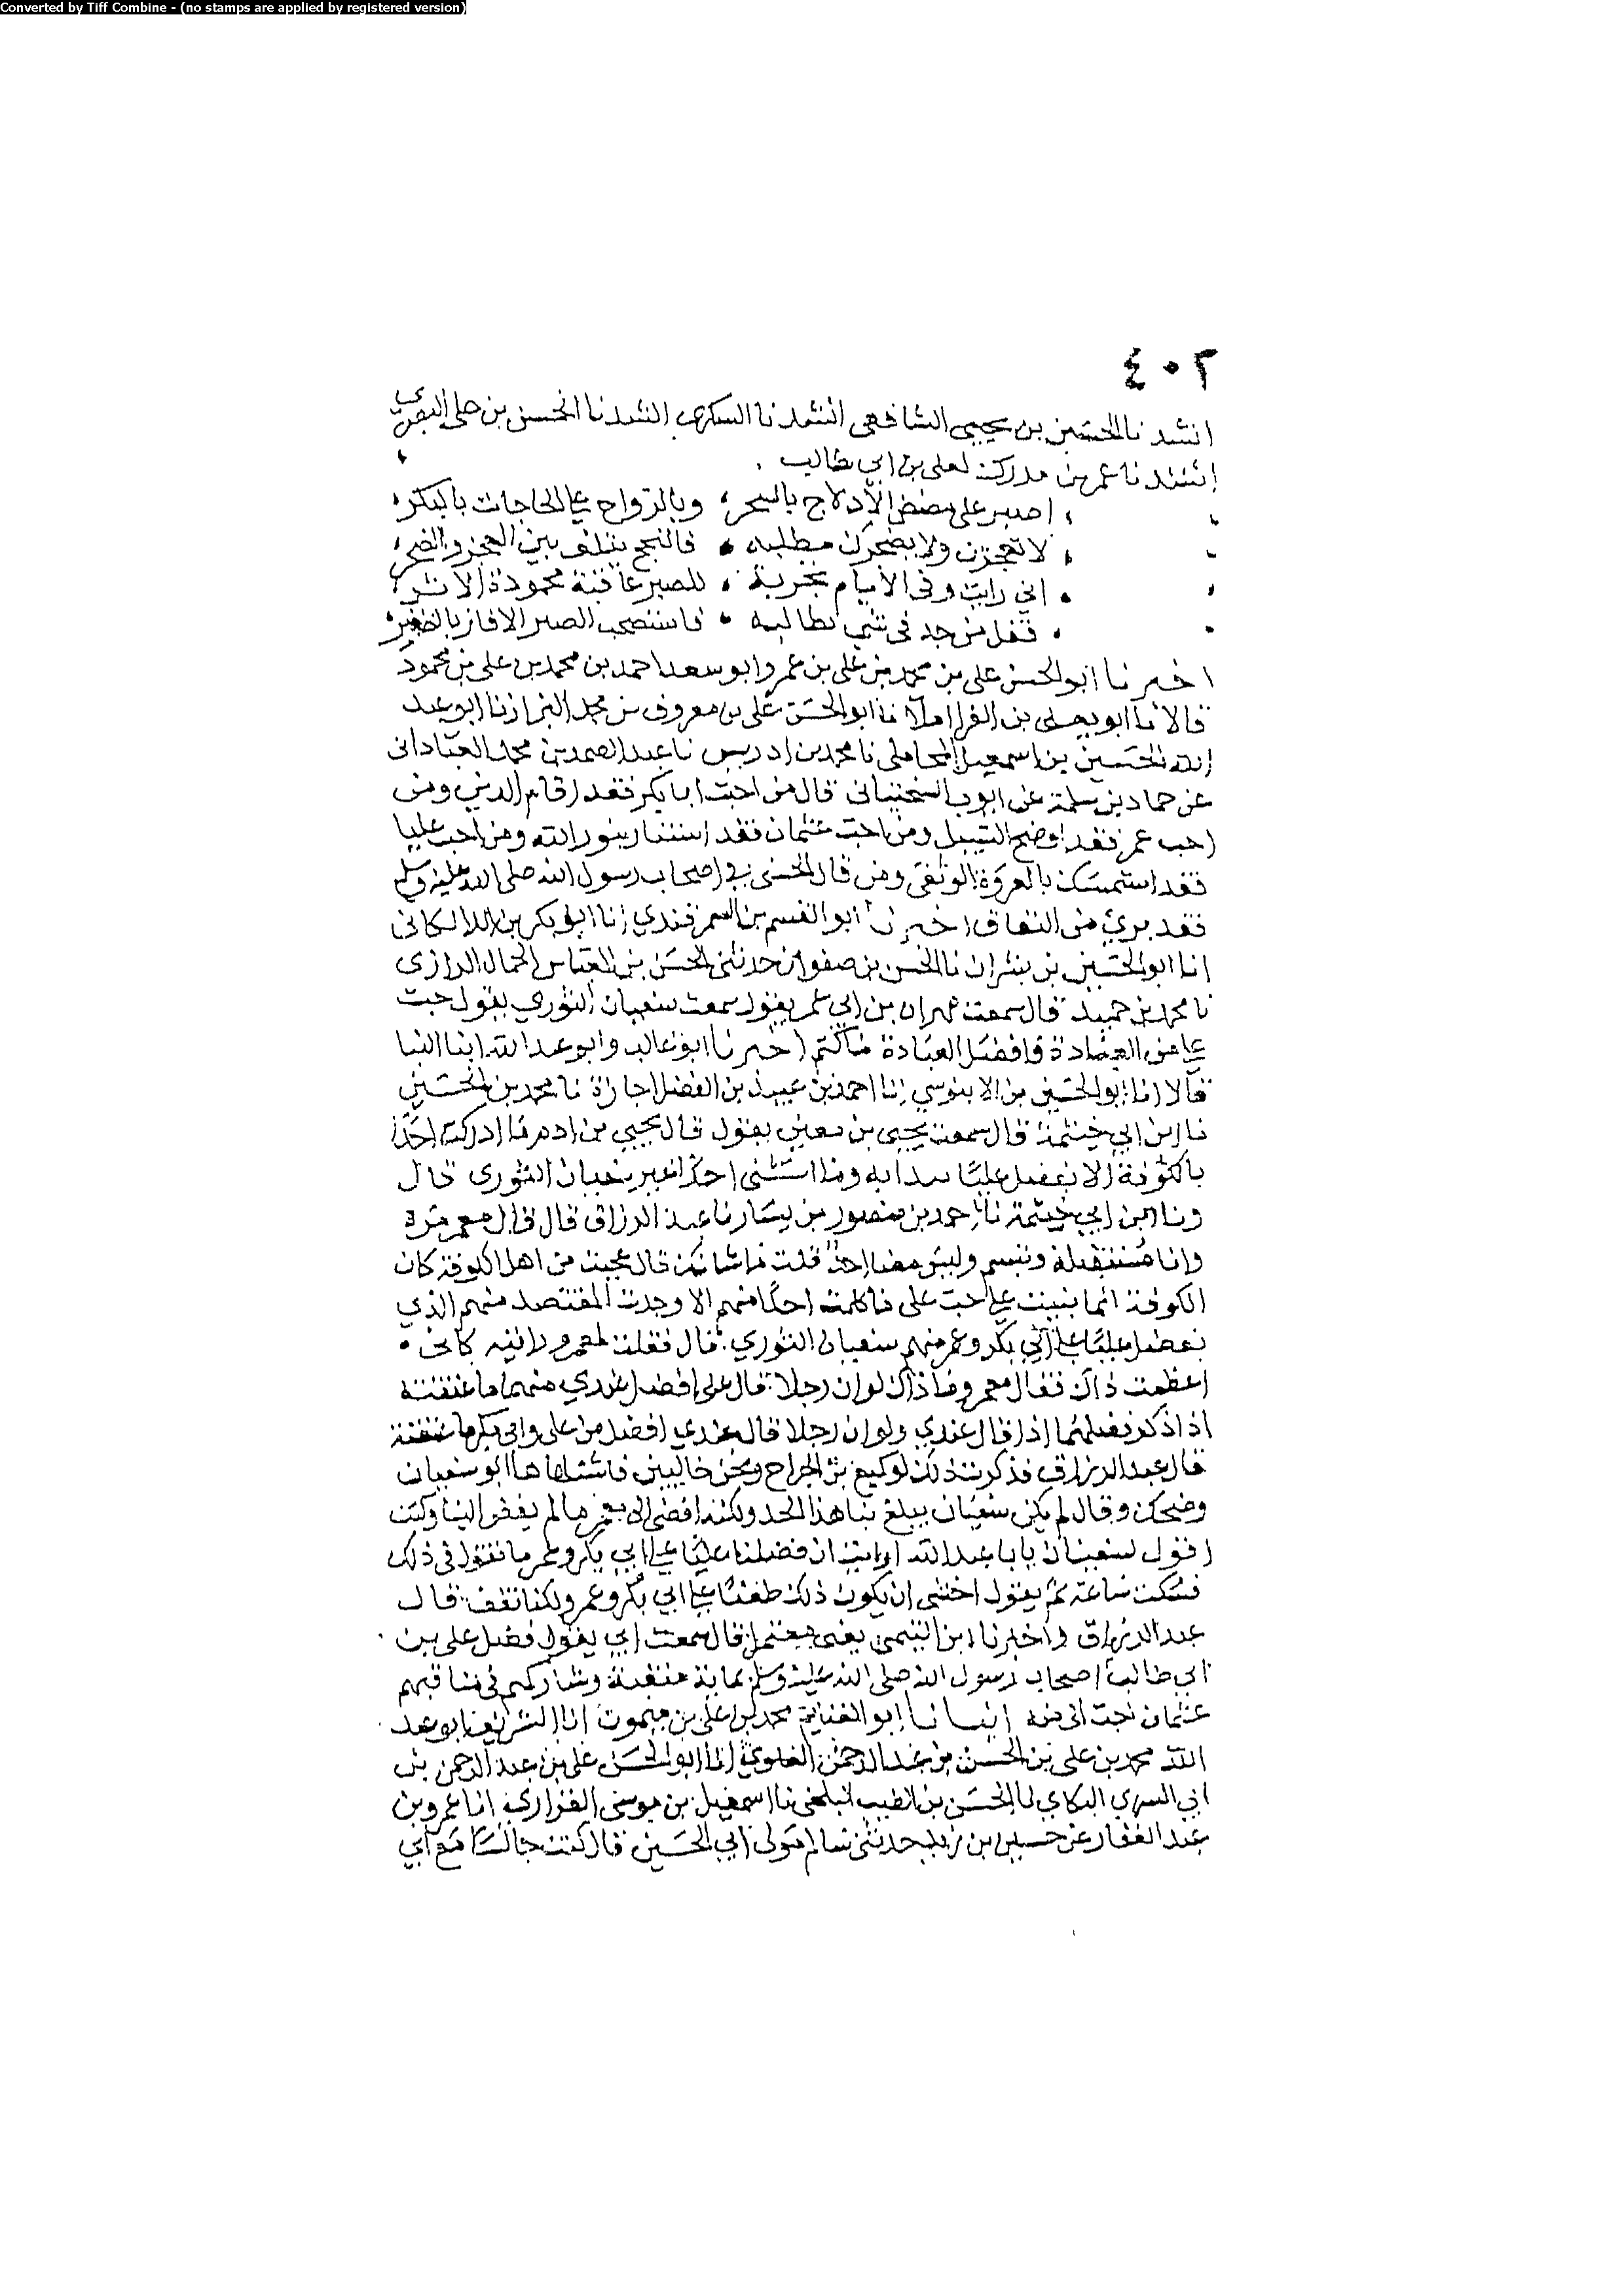 Converted by Tiff Combine - (no stamps are applied by registered version)
٤٠٢
انشدنا الحسين بن يحيى الشافعي انشدنا السكري انشدنا الحسن بن علي البصري
انشدنا عمر بن مدرك لعلي بن ابي طالب
اصبر على مضض الادلاج بالسحر وبالرواح على الحاجات بالبكر
لا تعجزن ولا يضجرك مطلبه فالنجح يتلف بين العجز والضجر
اني رايت وفي الايام تجربة للصبر عاقبة محمودة الاثر
فقل من جد في شي يطالبه فاستصحب الصبر الا فاز بالظفر
اخبرنا ابو الحسن علي بن محمد بن علي بن عمر وابو سعد احمد بن محمد بن علي بن محمود
قالا نا ابو يعلى بن الفرا املا نا ابو الحسن علي بن معروف بن محمد البزاز نا ابو عبد
الله الحسين بن اسمعيل المحاملي نا محمد بن ادريس نا عبد الصمد بن محمد العباداني
عن حماد بن سلمة عن ايوب السختياني قال من احب ابا بكر فقد اقام الدين ومن
احب عمر فقد اوضح السبيل ومن احب عثمان فقد استنار بنور الله ومن احب عليا
فقد استمسك بالعروة الوثقى ومن قال الحسنى في اصحاب رسول الله صلى الله عليه وسلم
فقد بري من النفاق اخبرنا ابو القسم بن السمرقندي انا ابو بكر بن اللالكائي
انا ابو الحسين بن بشران نا الحسن بن صفوان حدثني الحسن بن العباس الحمال الرازي
نا محمد بن حميد قال سمعت مهران بن ابي عمر يقول سمعت سفيان الثوري يقول حب
علي من العبادة وافضل العبادة ما كتم اخبرنا ابو غالب وابو عبد الله ابنا البنا
قالا انا ابو الحسين بن الابنوسي انا احمد بن عبيد بن الفضل اجازة نا محمد بن الحسين
نا ابن ابي خيثمة قال سمعت يحيى بن معين يقول قال يحيى بن ادم ما ادركت احدا
بالكوفة الا يفضل عليا يبدا به وما استثنى احدا غير سفيان الثوري قال
ونا ابن ابي خيثمة نا احمد بن منصور بن يسار نا عبد الرزاق قال قال معمر مرة
وانا مستقبله وتبسم وليس معنا احد قلت ما شانك قال عجبت من اهل الكوفة كان
الكوفة انما بنيت على حب علي ما كلمت احدا منهم الا وجدت المقتصد منهم الذي
يفضل عليا على ابي بكر وعمر منهم سفيان الثوري قال فقلت لمعمر ورايته كاني
اعظمت ذاك فقال معمر وما ذاك لو ان رجلا قال علي افضل عندي منهما ما عنفته
اذا ذكر فضلهما اذا قال عندي ولو ان رجلا قال عندي افضل من علي وابي بكر ما عنفته
قال عبد الرزاق فذكرت ذلك لوكيع بن الجراح ونحن خاليين فاشتهاها ابو سفيان
وضحك وقال لم يكن سفيان يبلغ بنا هذا الحد ولكنه افضى الى معمر ما لم يفض الينا وكنت
اقول لسفيان يابا عبد الله ارايت ان فضلنا عليا على ابي بكر وعمر ما تقول في ذلك
فسكت ساعة ثم يقول اخشى ان يكون ذلك طعنا على ابي بكر وعمر ولكنا نقف قال
عبد الرزاق واخبرنا ابن التيمي يعني معتمر قال سمعت ابي يقول فضل علي بن
ابي طالب اصحاب رسول الله صلى الله عليه وسلم بماية منقبة وشاركهم في مناقبهم
عثمان احب الي منه انبانا ابو الغنايم محمد بن علي بن ميمون انا الشريف ابو عبد
الله محمد بن علي بن الحسن بن عبد الرحمن العلوي انا ابو الحسن علي بن عبد الرحمن بن
ابي السري البكاي نا الحسن بن الطيب البلخي نا اسمعيل بن موسى الفزاري انا عمرو بن
عبد الغفار عن حسين بن زيد حدثني سالم مولى ابي الحسين قال كنت جالسا مع ابي